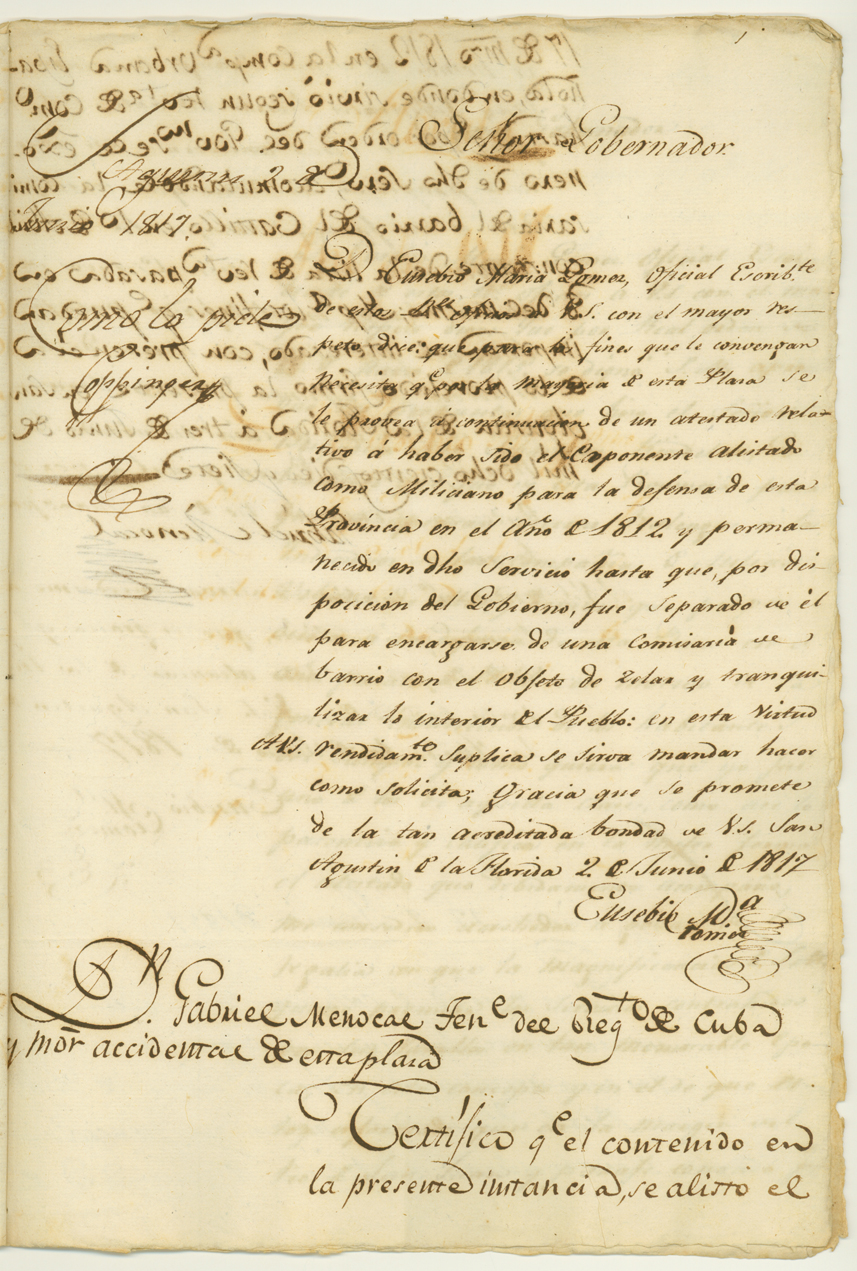 1
Señor Gobernador.
Sn Agustin 2 de
Junio 1817.
Como lo pide
Coppinger
Dn Eusebio Maria Gomez, oficial Escribte
de esta á V.S. con el mayor res-
peto dice: que para los fines que le convengan
necesita qe por la mayoria de esta Plaza se
le provea á continuacion de un atestado rela-
tivo á haber sido el Exponente alistado
como Miliciano para la defensa de esta
Provincia en el Año de 1812 y perma-
necido en dho Servicio hasta que, por dis-
pocicion del Gobierno, fue separado de él
para encargarse de una Comisaria de
barrio con el objeto de zelar y tranqui-
lizar lo interior del Pueblo: en esta virtud
A V.S. rendidamte. suplica se sirva mandar hacer
como solicita; gracia que se promete
de la tan acreditada bondad de V.S. San
Agustin de la Florida 2 de Junio de 1817
Eusebio Ma
Gomez
Dn. Gabriel Menocal Tene del Regto de Cuba
y mor accidental de esta plaza
Certifico qe el contenido en
la presente instancia, se alistó el